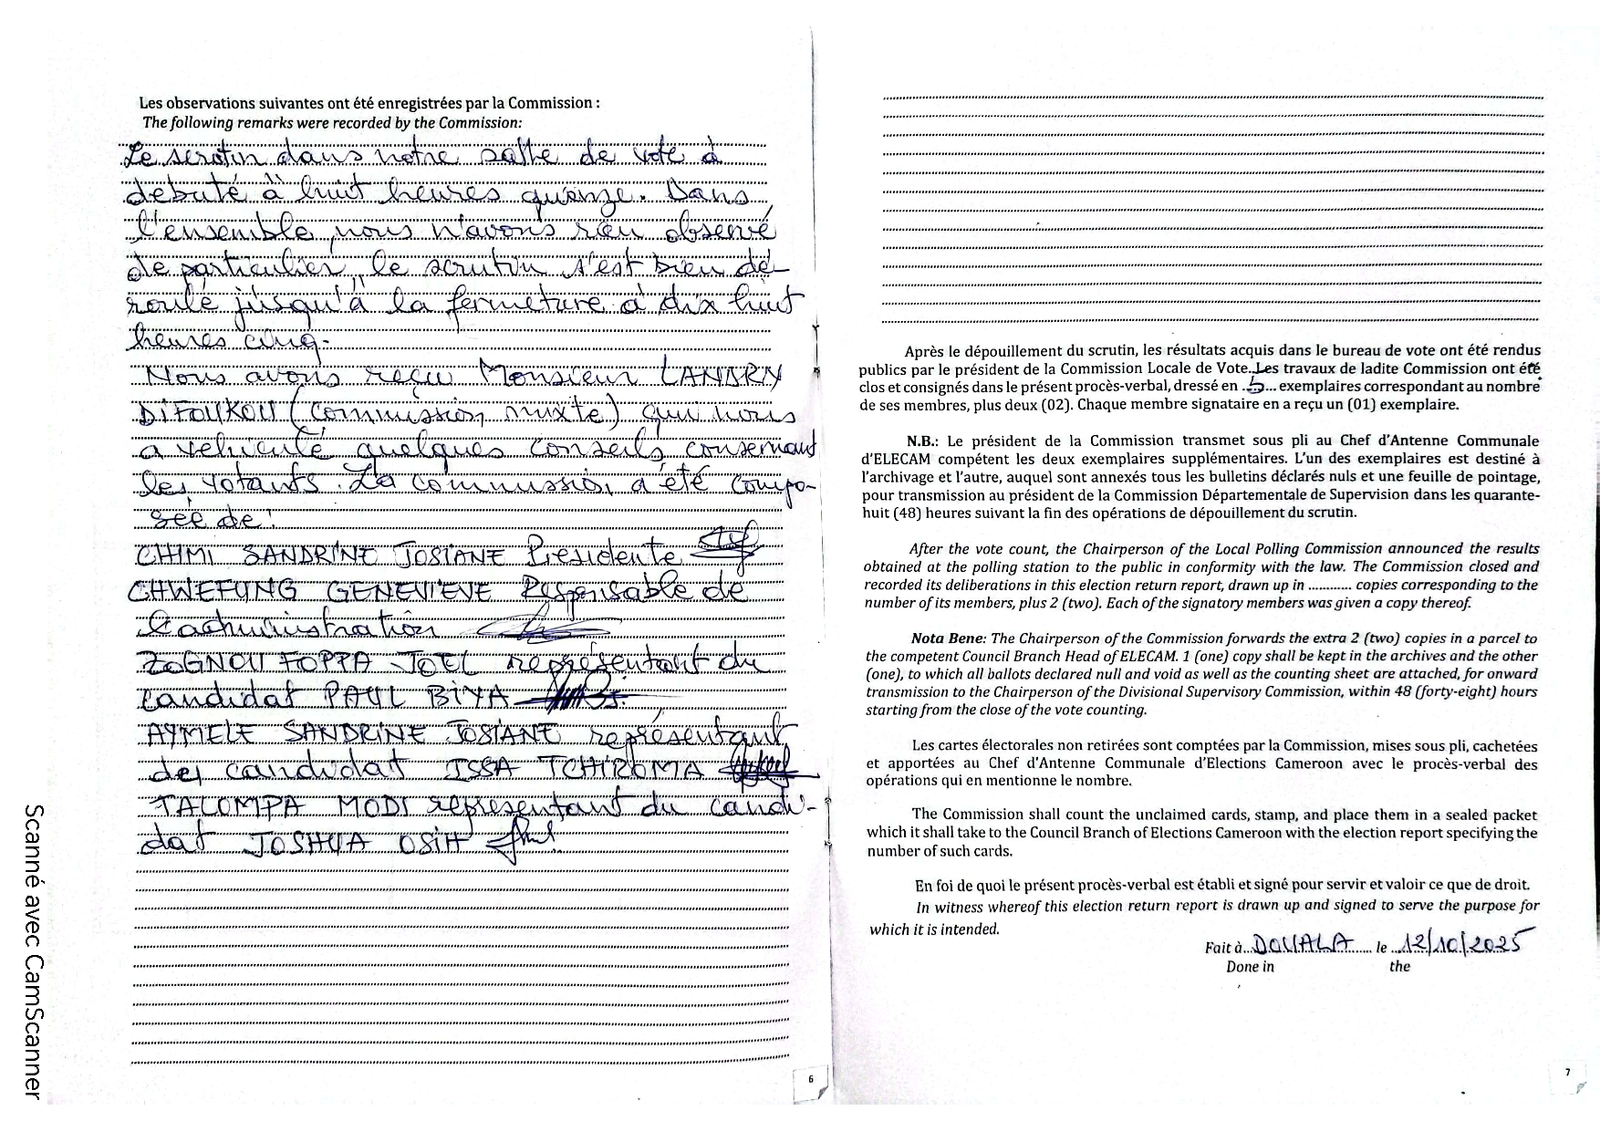 Les observations suivantes ont été enregistrées par la Commission :
The following remarks were recorded by the Commission:
Le scrutin dans notre salle de vote à
debuté à huit heures quinze. Dans
l'ensemble, nous n'avons rien observé
de particulier, le scrutin s'est bien dé-
roulé jusqu'à la fermeture à dix huit
heures cinq.
Nous avons reçu Monsieur LANDRY
DIFOUKOU (Commission mixte) qui nous
a vehiculé quelques conseils consernant
les votants. La commission a été compo-
sée de :
CHIMI SANDRINE JOSIANE Presidente
CHWEFUNG GENEVIEVE Responsable de
l'administration
ZOGNOU FOPPA JOEL représentant du
candidat PAUL BIYA
AYMELE SANDRINE JOSIANE représentant
de candidat ISSA TCHIROMA
TALOMPA MODI représentant du candi-
dat JOSHUA OSIH
6
Après le dépouillement du scrutin, les résultats acquis dans le bureau de vote ont été rendus
publics par le président de la Commission Locale de Vote. Les travaux de ladite Commission ont été
clos et consignés dans le présent procès-verbal, dressé en ..5... exemplaires correspondant au nombre
de ses membres, plus deux (02). Chaque membre signataire en a reçu un (01) exemplaire.
N.B.: Le président de la Commission transmet sous pli au Chef d'Antenne Communale
d'ELECAM compétent les deux exemplaires supplémentaires. L'un des exemplaires est destiné à
l'archivage et l'autre, auquel sont annexés tous les bulletins déclarés nuls et une feuille de pointage,
pour transmission au président de la Commission Départementale de Supervision dans les quarante-
huit (48) heures suivant la fin des opérations de dépouillement du scrutin.
After the vote count, the Chairperson of the Local Polling Commission announced the results
obtained at the polling station to the public in conformity with the law. The Commission closed and
recorded its deliberations in this election return report, drawn up in ........... copies corresponding to the
number of its members, plus 2 (two). Each of the signatory members was given a copy thereof.
Nota Bene: The Chairperson of the Commission forwards the extra 2 (two) copies in a parcel to
the competent Council Branch Head of ELECAM. 1 (one) copy shall be kept in the archives and the other
(one), to which all ballots declared null and void as well as the counting sheet are attached, for onward
transmission to the Chairperson of the Divisional Supervisory Commission, within 48 (forty-eight) hours
starting from the close of the vote counting.
Les cartes électorales non retirées sont comptées par la Commission, mises sous pli, cachetées
et apportées au Chef d'Antenne Communale d'Elections Cameroon avec le procès-verbal des
opérations qui en mentionne le nombre.
The Commission shall count the unclaimed cards, stamp, and place them in a sealed packet
which it shall take to the Council Branch of Elections Cameroon with the election report specifying the
number of such cards.
En foi de quoi le présent procès-verbal est établi et signé pour servir et valoir ce que de droit.
In witness whereof this election return report is drawn up and signed to serve the purpose for
which it is intended.
Fait à DOUALA le 12/10/2025
Done in the
7
Scanné avec CamScanner